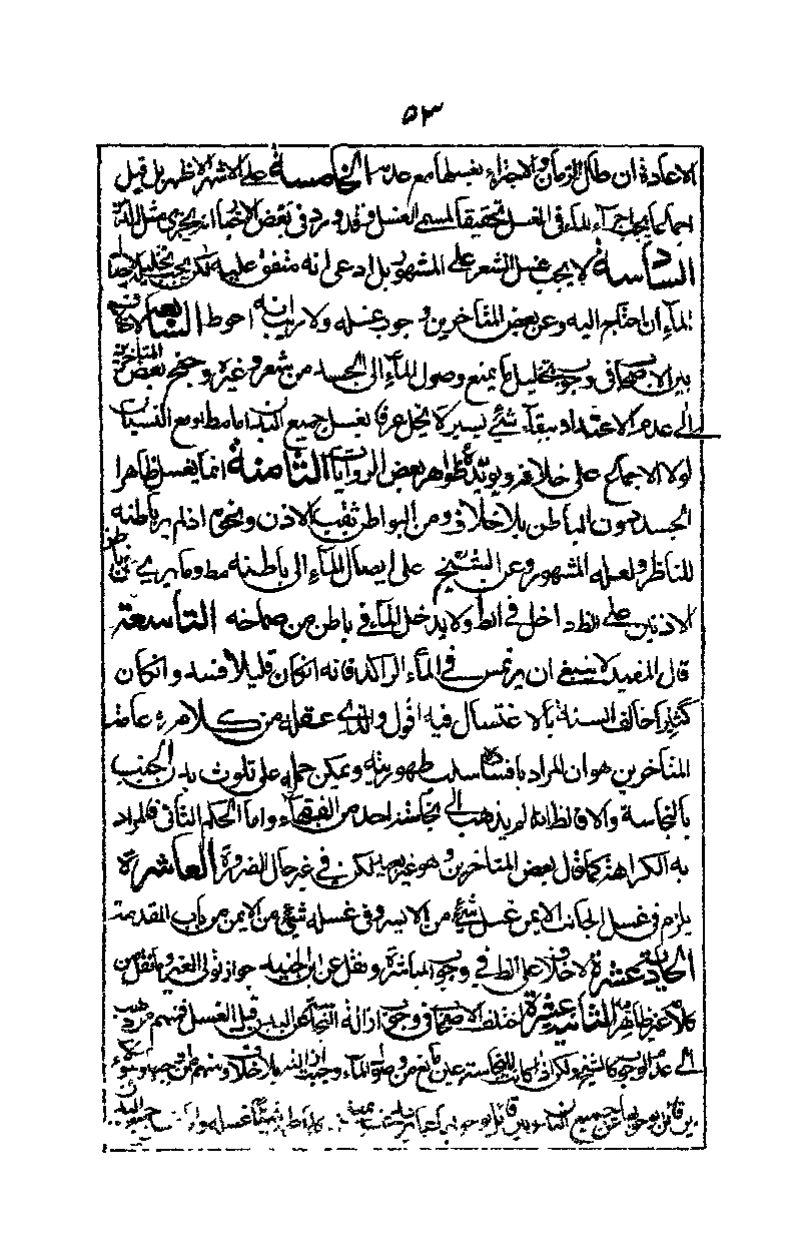 ٥٣
الاعادة ان طال الزمان والاجزاء بغسلها مع عدمه الخامسة على الاشهر الاظهر بل قيل
اجماعا يجب اجراء الماء في الغسل تحقيقا لمسمى الغسل وقد ورد في بعض الاخبار يجزى مثل الدهن
السادسة لا يجب غسل الشعر على المشهور بل ادعى انه متفق عليه لكن يجب تخليله لايصال
الماء ان احتاج اليه وعن بعض المتاخرين وجوب غسله ولا ريب انه احوط السابعة لا خلاف
بين الاصحاب في وجوب تخليل ما يمنع وصول الماء الى الجسد من شعر وغيره وجنح بعض المتاخرين
الى عدم الاعتداد ببقاء شيء يسير لا يخل عرفا بغسل جميع البدن اما مط او مع النسيان
لولا الاجماع على خلافه ويؤيده ظواهر بعض الروايات الثامنة انما يغسل ظاهر
الجسد دون الباطن بلا خلاف ومن البواطن ثقب الاذن ونحوه اذا لم ير باطنه
للناظر ولعله المشهور وعن الشيخ على ايصال الماء الى باطنه مط وما يرى من
الاذنين على الظ داخل في الظ ولا يدخل الماء في باطن من صماخه التاسعة
قال المفيد لا ينبغي ان يرتمس في الماء الراكد فانه ان كان قليلا افسده وان كان
كثيرا خالف السنة بالاغتسال فيه اقول والذي عقله من كلامه عامة
المتاخرين هو ان المراد بافساده سلب طهوريته ويمكن حمله على تلوث بدن الجنب
بالنجاسة والا فالظ انه لم يذهب الى نجاسته احد من الفقهاء واما الحكم الثاني فالمراد
به الكراهة كما قال بعض المتاخرين وهو غير بعيد لكن في غير حال الضرورة العاشرة
يلزم في غسل الجانب الايمن غسل شيء من الايسر وفي غسله شيء من الايمن من باب المقدمة
الحادية عشرة لا خلاف على الظ في وجوب المباشرة ونقل عن ابن الجنيد جواز تولى الغير وما نقل من
كلامه غير ظاهر فيه الثانية عشرة اختلف الاصحاب في وجوب ازالة النجاسة عن البدن قبل الغسل فمنهم من ذهب
الى عدم الوجوب كالشيخ ولكن اذا كانت للنجاسة عين مانع من وصول الماء وجبت ازالتها بلا خلاف ومنهم من